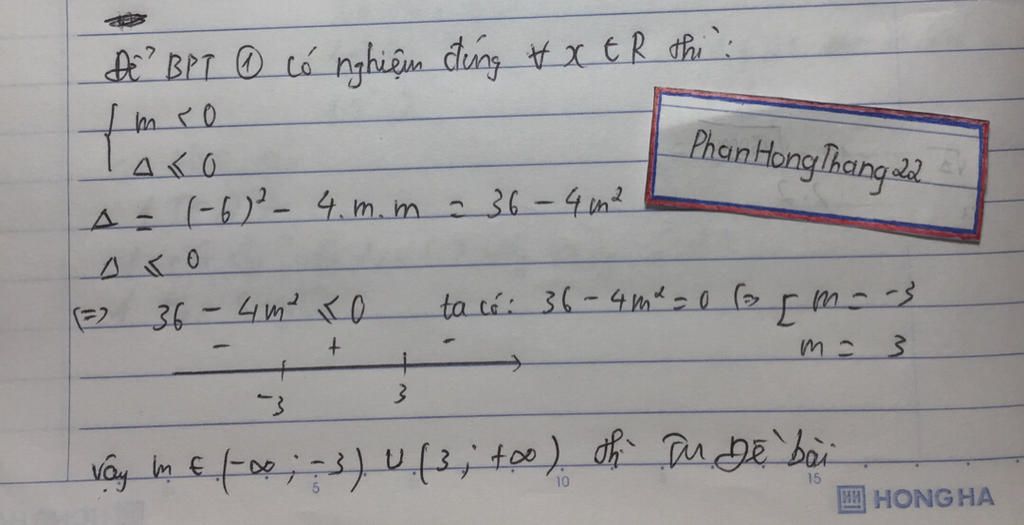 Để BPT ① có nghiệm đúng ∀ x ∈ R thì:
{ m < 0
Δ ≤ 0
PhanHongThang22
Δ = (-6)² - 4.m.m = 36 - 4m²
Δ ≤ 0
(=> 36 - 4m² ≤ 0 ta có: 36 - 4m² = 0 (=> [ m = -3
m = 3
- + -
-3 3
vậy m ∈ (-∞; -3) ∪ (3; +∞) thì TM Đề bài
5 10 15
HONG HA